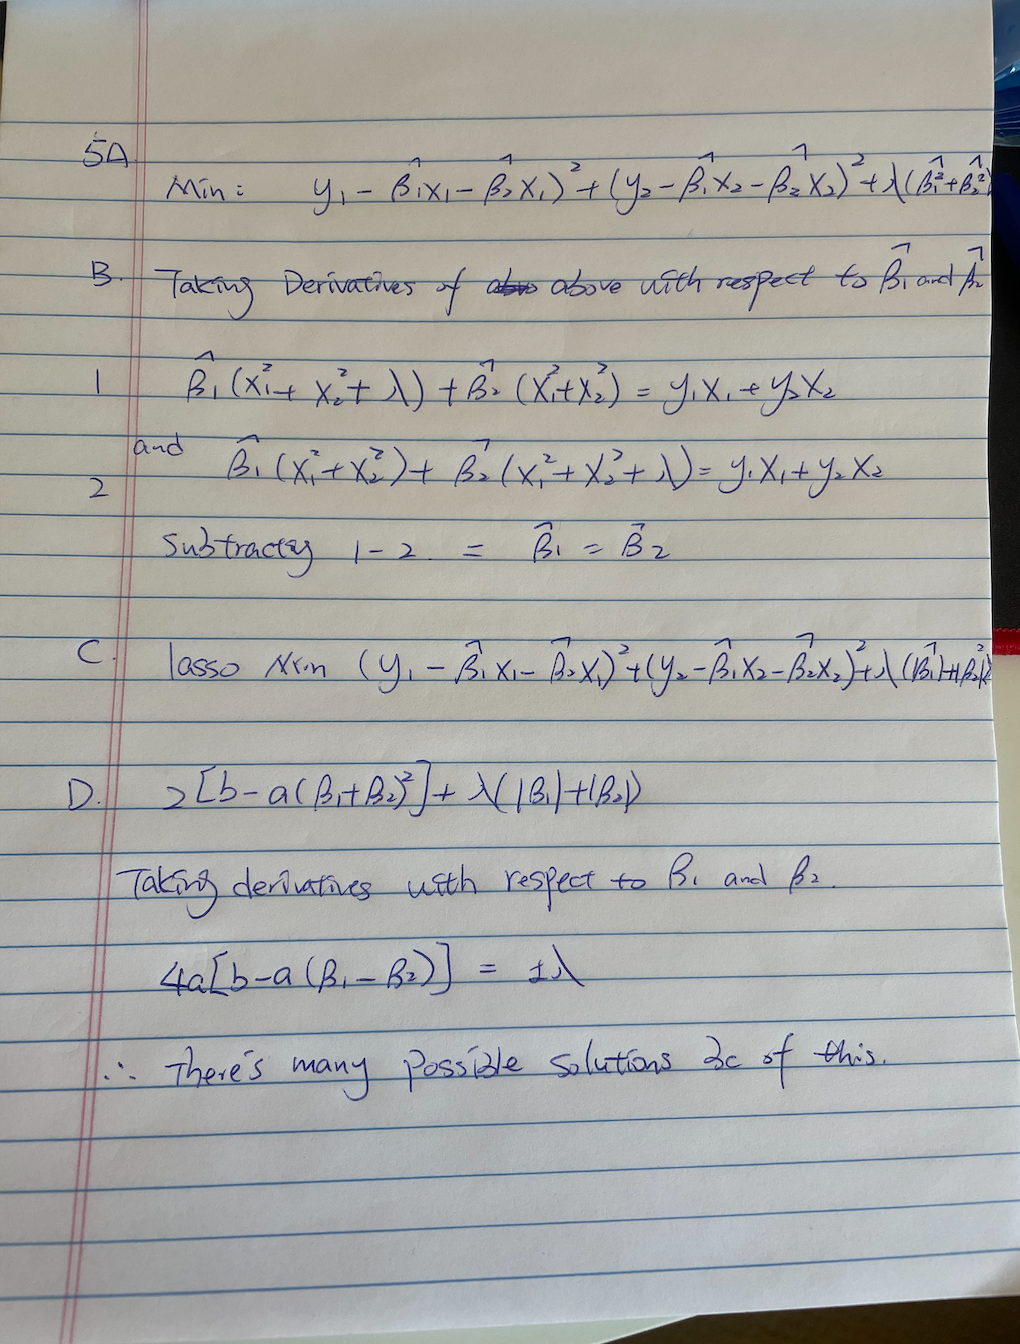 5A
Min: y₁ - β̂₁x₁ - β̂₂x₁)² + (y₂ - β̂₁x₂ - β̂₂x₂)² + λ(β̂₁² + β̂₂²)
B. Taking Derivatives of above with respect to β̂₁ and β̂₂
1 β̂₁(x₁² + x₂² + λ) + β̂₂(x₁² + x₂²) = y₁x₁ + y₂x₂
and
2 β̂₁(x₁² + x₂²) + β̂₂(x₁² + x₂² + λ) = y₁x₁ + y₂x₂
Subtracting 1-2. = β̂₁ = β̂₂
C. lasso Min (y₁ - β̂₁x₁ - β̂₂x₁)² + (y₂ - β̂₁x₂ - β̂₂x₂)² + λ(|β̂₁| + |β̂₂|)
D. 2[b - a(β₁+β₂)²] + λ(|β₁| + |β₂|)
Taking derivatives with respect to β₁ and β₂.
4a[b - a(β₁ - β₂)] = ±λ
∴ There's many possible solutions bc of this.